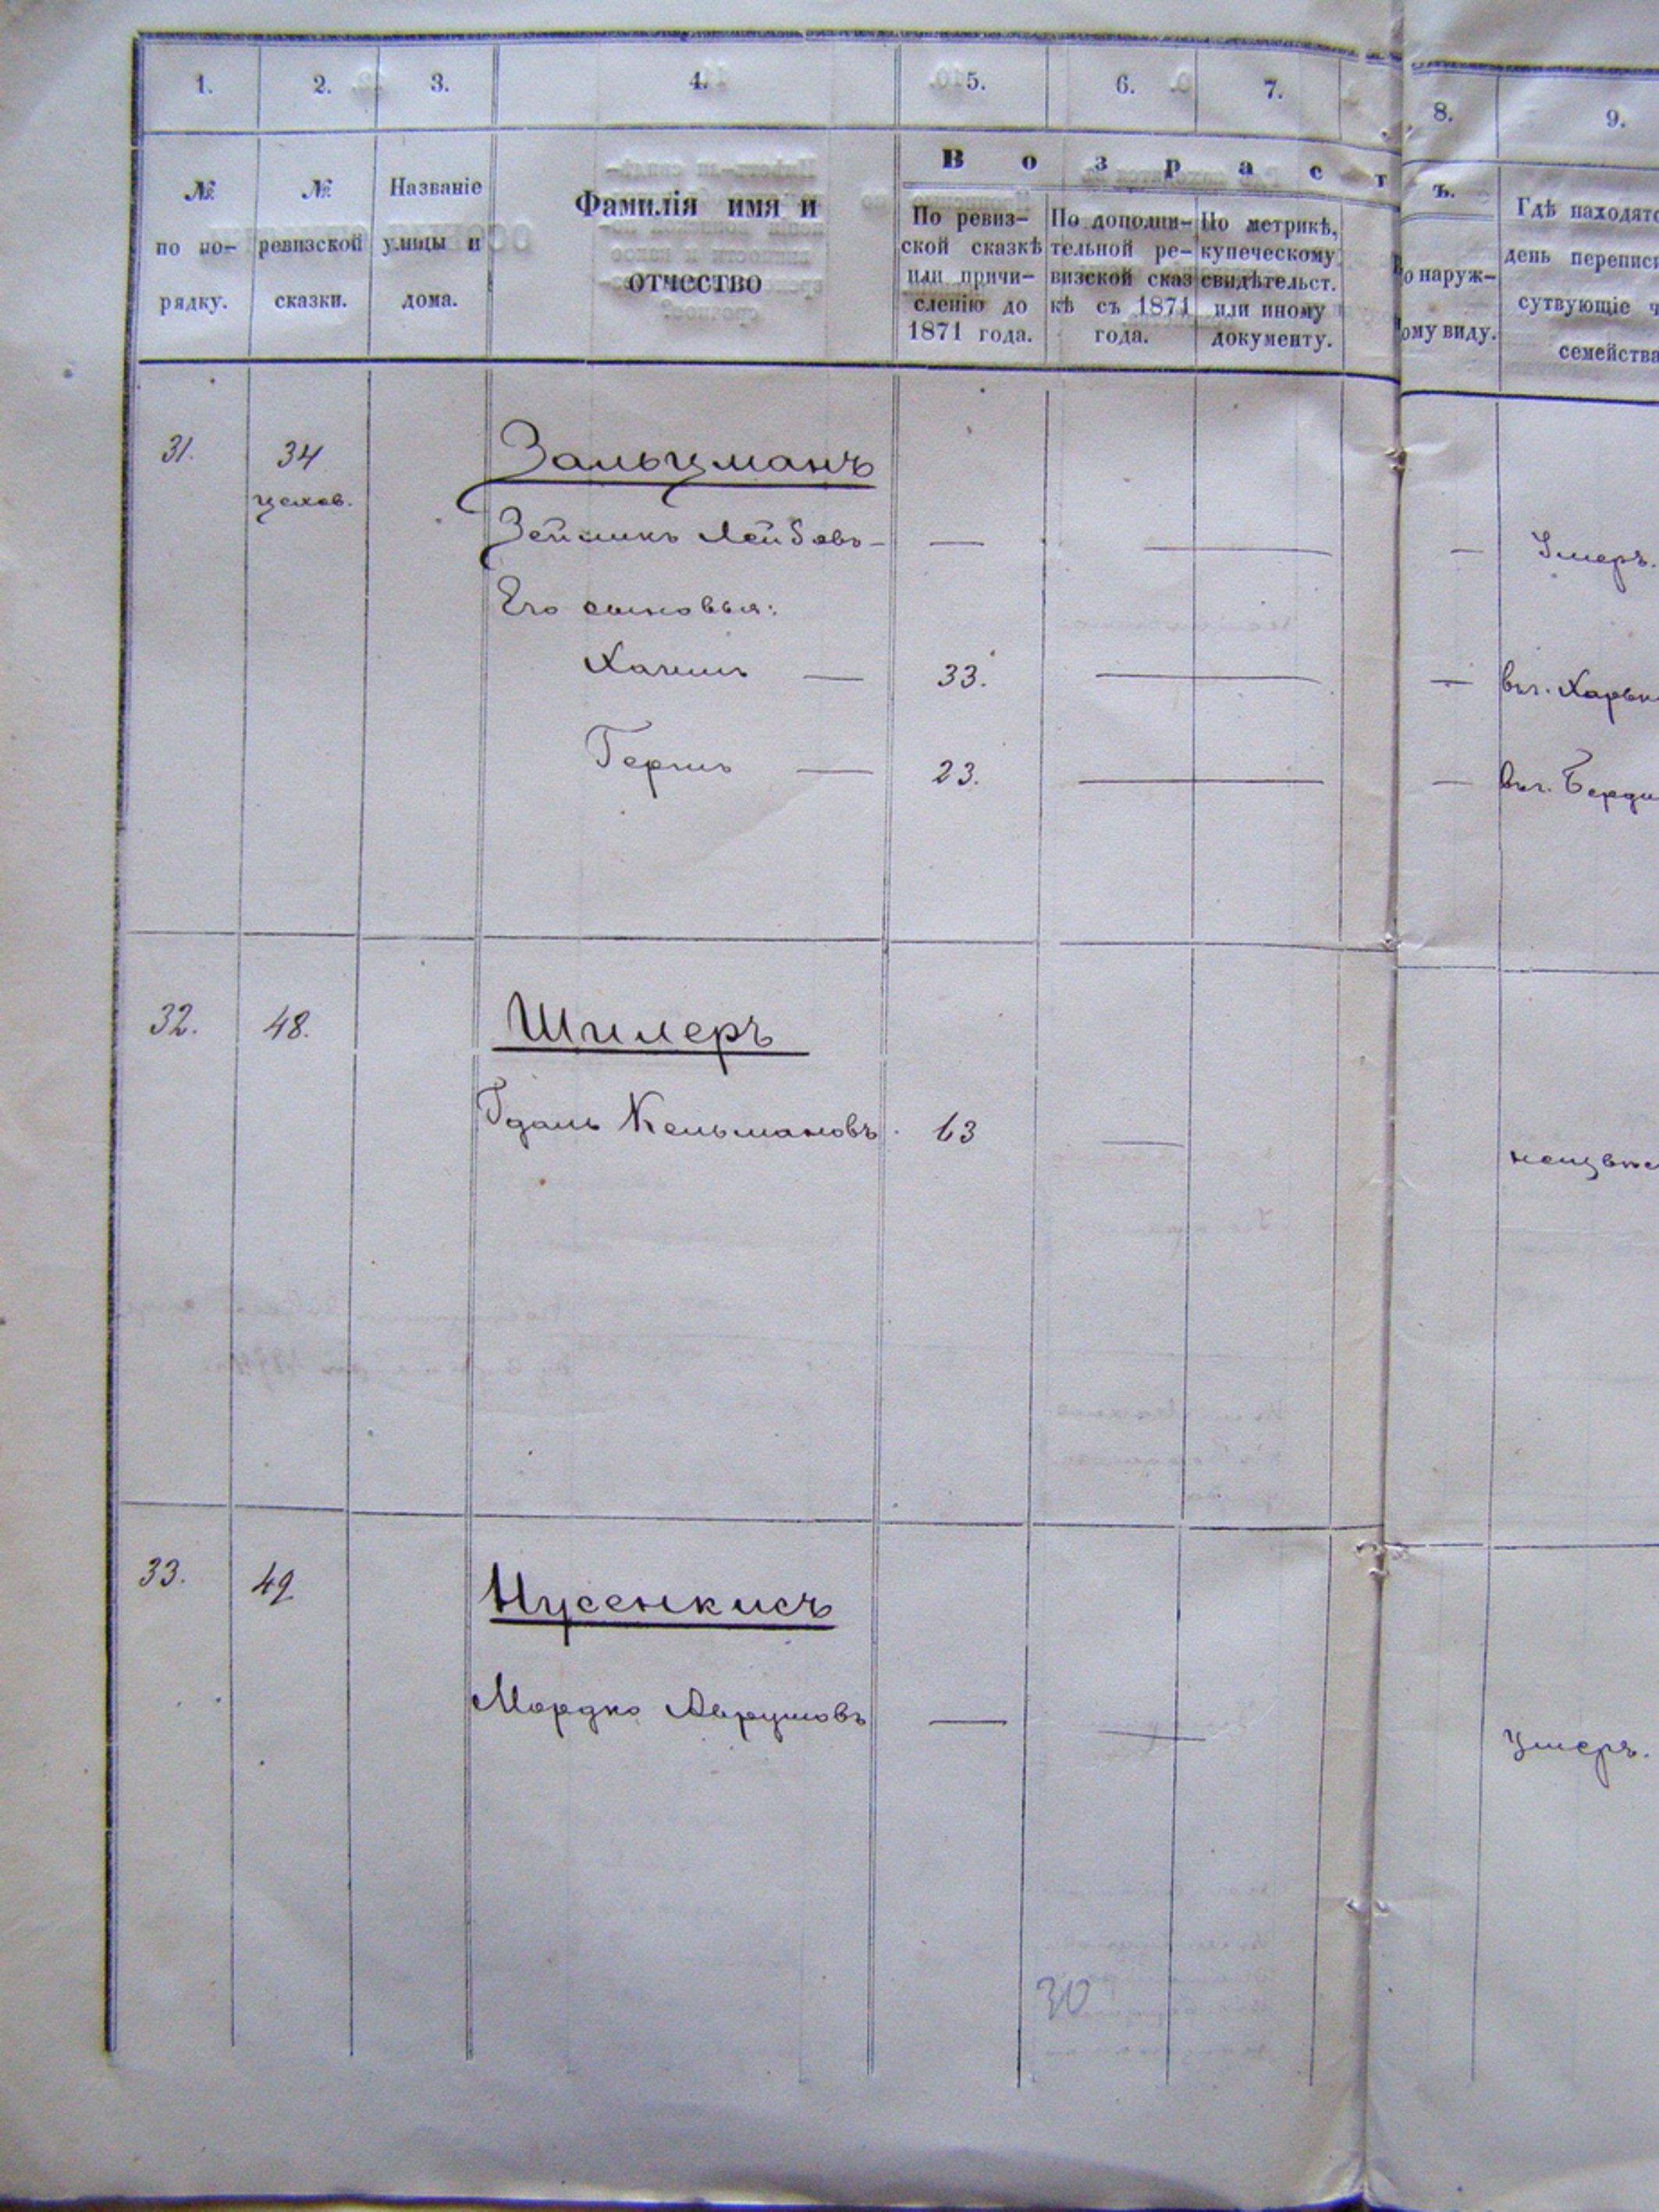 1. 2. 3. 4. 5. 6. 7. 8. 9.
В о з р а с т ъ.
№ по по-
рядку.
№ ревизской
сказки.
Названіе
улицы и
дома.
Фамилія имя и
отчество
По ревиз-
ской сказкѣ
или причи-
сленію до
1871 года.
По дополни-
тельной ре-
визской сказ
кѣ съ 1871
года.
По метрикѣ,
купеческому
свидѣтельст.
или иному
документу.
о наруж-
ому виду.
Гдѣ находятс
день переписи
сутвующіе ч
семейства
31. 34 Зальцманъ
цехов.
Зейликъ Лейбовъ — — — — Умеръ.
Его сыновья:
Хаимъ — 33. — — въ г. Харьк
Гершъ — 23. — — въ г. Берди
32. 48. Шилеръ
Гдаль Кельмановъ. 63 — неизвѣс
33. 49 Нусенкисъ
Мордко Аврумовъ — — умеръ.
30